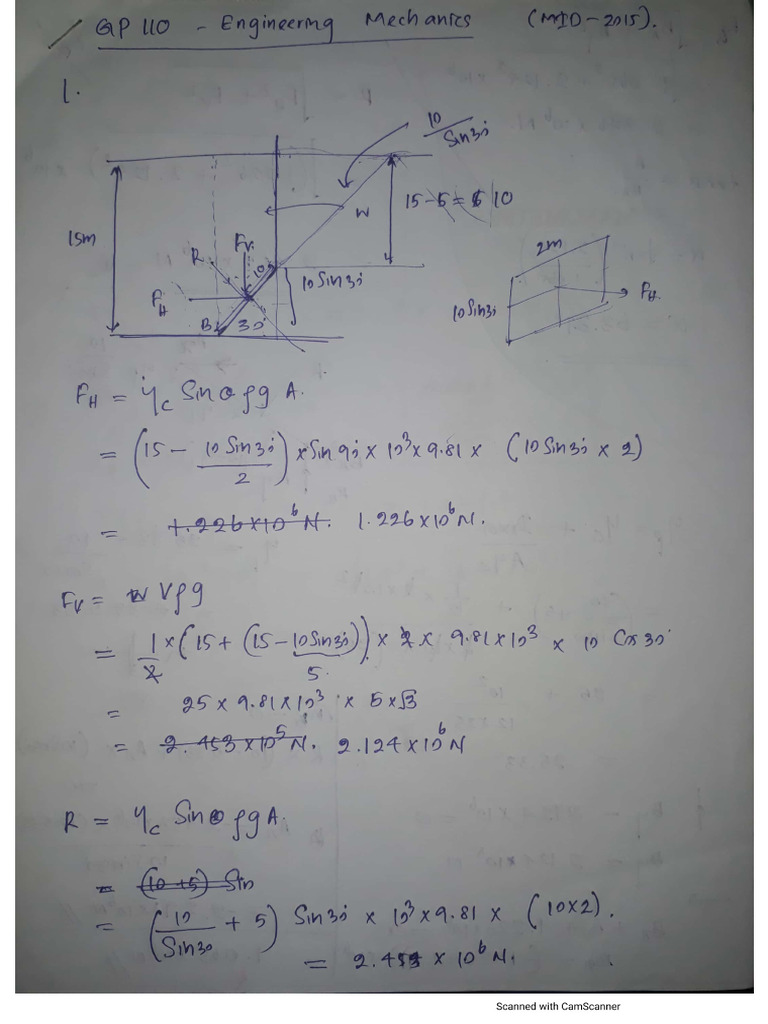 GP 110 - Engineering Mechanics (MID-2015).
1.
10/Sin30
15m
W
15-5 = 5 10
Fv
R
10
10 Sin30
FH
B
30
2m
10 Sin30
FH
FH = yc Sinθ ρg A.
= (15 - 10 Sin30/2) × Sin 90 × 10³ × 9.81 × (10 Sin30 × 2)
= 1.226×10⁶ N. 1.226×10⁶ N.
FV = Vρg
= 1/2 × (15 + (15-10Sin30)) × 2 × 9.81×10³ × 10 Cos 30
5
= 25 × 9.81×10³ × 5×√3
= 2.453×10⁵ N. 2.124×10⁶ N
R = yc Sinθ ρg A.
= (10+5) Sin
= (10/Sin30 + 5) Sin30 × 10³ × 9.81 × (10×2).
= 2.453 × 10⁶ N.
Scanned with CamScanner